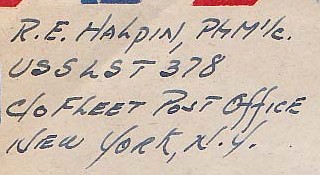 R.E. HALPIN, PHM1/c.
USS LST 378
c/o FLEET POST OFFICE
NEW YORK, N.Y.